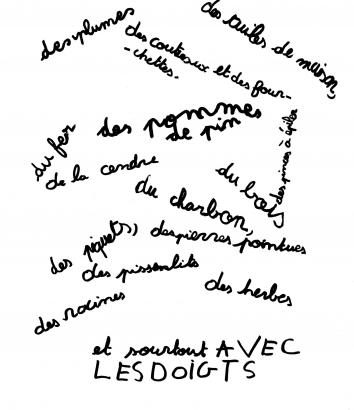 des plumes
des tuiles de maison,
des couteaux et des four-
-chettes.
des pommes
de pin
des pinces à épiler
du fer
de la cendre
du bois
du charbon,
des piquets,
des pierres pointues
des pissenlits
des herbes
des racines
et surtout AVEC
LES DOIGTS